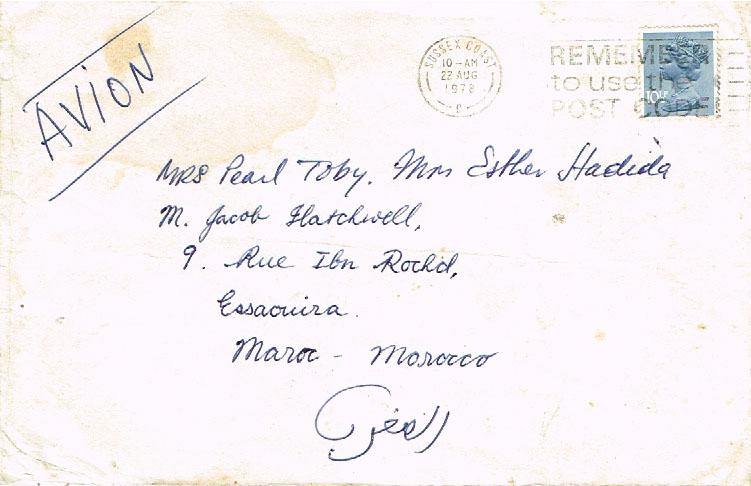 AVION
SUSSEX COAST
10-AM
22 AUG
1978
P
REMEMBER
to use the
POST CODE
10½P
MRS Pearl Toby. Mrs Esther Hadida
M. Jacob Hatchwell,
9. Rue Ibn Rochd,
Essaouira.
Maroc - Morocco
المغرب